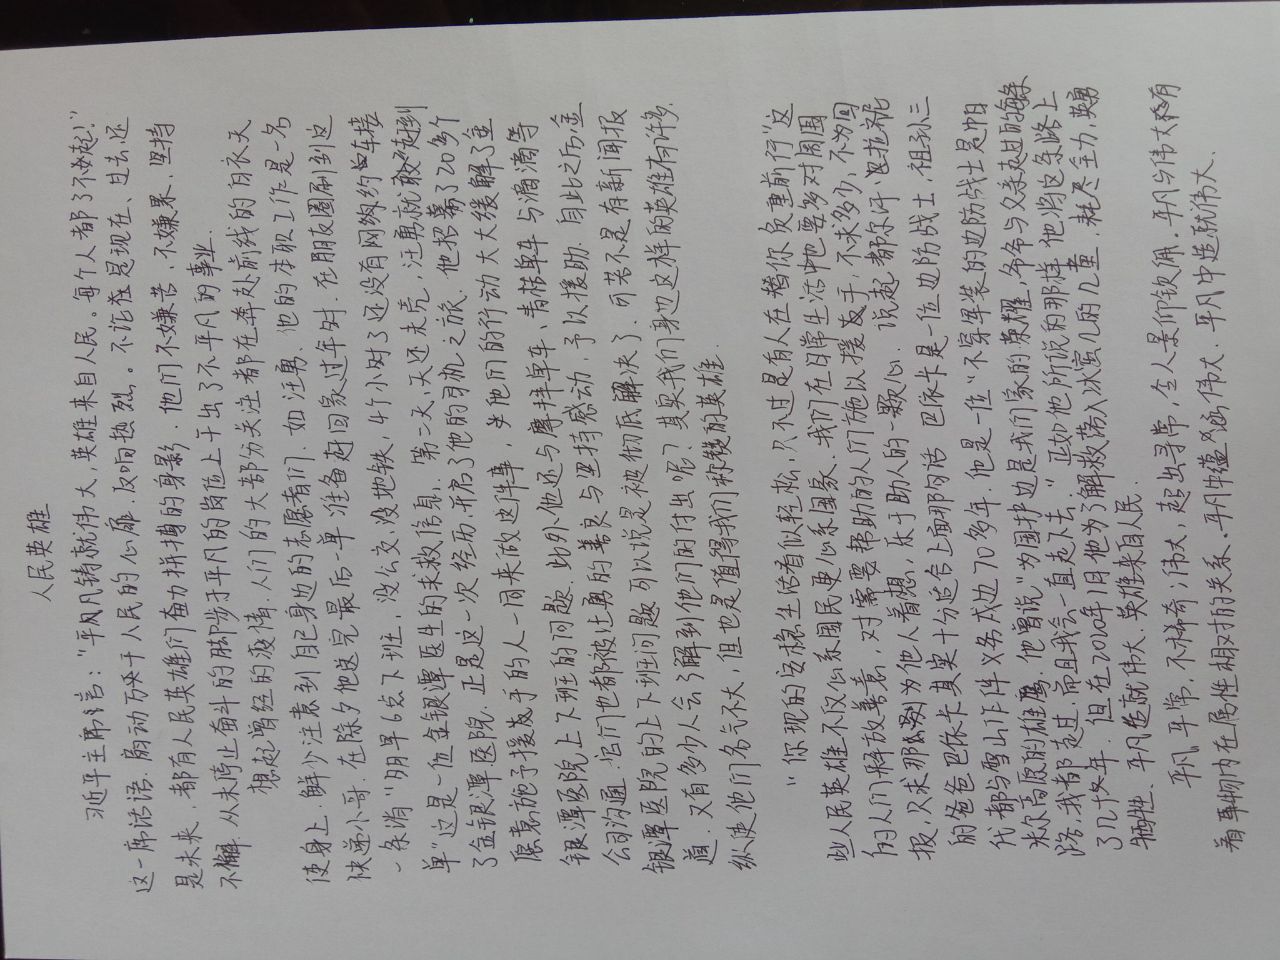 人民英雄
习近平主席言：“平凡铸就伟大，英雄来自人民。每个人都了不起！”
这一席话语扇动万千人民的心扉，反响热烈。不论是现在、过去还
是未来，都有人民英雄们奋力拼搏的身影。他们不嫌苦、不嫌累，坚持
不懈，从未停止奋斗的脚步于平凡的岗位上干出了不平凡的事业.
想起曾经的疫情，人们的大部分关注都在奔赴前线的白衣天
使身上，鲜少注意到自己身边的志愿者们，如汪勇，他的本职工作是一名
快递小哥，在除夕他送完最后一单准备赶回家过年时，在朋友圈刷到这
一条消“明早6点下班，没公交，没地铁，4个小时了还没有网约车接
单”这是一位金银潭医生的求救信息，第二天，天还未亮，汪勇就赶到
了金银潭医院，正是这一次经历开启了他的司机之旅，他招募了20多个
愿意施予援手的人一同来做这件事，他们的行动大大缓解了金
银潭医院上下班的问题，此外他还与摩拜单车、青桔单车与滴滴等
公司沟通，它们也都被汪勇的善良与坚持感动，予以援助，自此之后，金
银潭医院的上下班问题可以说是被彻底解决了，可若不是有新闻报
道，又有多少人会了解到他们的付出呢？其实我们身边这样的英雄有许多
纵使他们名气不大，但也是值得我们称赞的英雄.
“你现的安稳生活看似轻松，只不过是有人在替你负重前行”这
些人民英雄不仅心系国民更心系国家，我们在日常生活中也要多对周围
的人们释放善意，对需要帮助的人们施以援手，不求多少，不为回
报，只求那为他人着想，乐于助人的一颗心. 说起都尔汗·巴拉提
的爸爸巴依卡真真十分适合上面那句话 巴依卡是一位边防战士，祖孙三
代都与雪山作伴 义务戍边70多年 他是一位“不穿军装的边防战士是帕
米尔高原的雄鹰，他曾说“为国护边是我们家的荣耀，爷爷与父亲走过的
路，我都走过，而且我会一直走下去。”正如他所说的那样他将这条路上
了几十余年. 但在2020年1月他为了解救落入冰窟儿的儿童，耗尽全力，英勇
牺牲、平凡造就伟大、英雄来自人民.
平凡，平常，不稀奇；伟大，超出寻常，令人景仰钦佩. 平凡与伟大有
着事物内在属性相对的关系. 平凡中蕴涵伟大. 平凡中造就伟大.